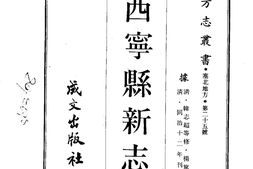 方志叢書・塞北地方・第二十五號
據
清・韓志超等修・楊篤
清・同治十二年刊
西寧縣新志
成文出版社